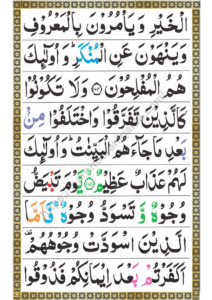 الْخَيْرِ وَيَأْمُرُونَ بِالْمَعْرُوفِ
وَيَنْهَوْنَ عَنِ الْمُنْكَرِ ؕ وَاُولٰٓئِكَ
هُمُ الْمُفْلِحُوْنَ ﴿۱۰۴﴾ وَلَا تَكُوْنُوْا
كَالَّذِيْنَ تَفَرَّقُوْا وَاخْتَلَفُوْا مِنْۢ
بَعْدِ مَا جَآءَهُمُ الْبَيِّنٰتُ ؕ وَاُولٰٓئِكَ
لَهُمْ عَذَابٌ عَظِيْمٌ ﴿۱۰۵﴾ يَّوْمَ تَبْيَضُّ
وُجُوْهٌ وَّتَسْوَدُّ وُجُوْهٌ ۚ فَاَمَّا
الَّذِيْنَ اسْوَدَّتْ وُجُوْهُهُمْ
اَكَفَرْتُمْ بَعْدَ اِيْمَانِكُمْ فَذُوْقُوا